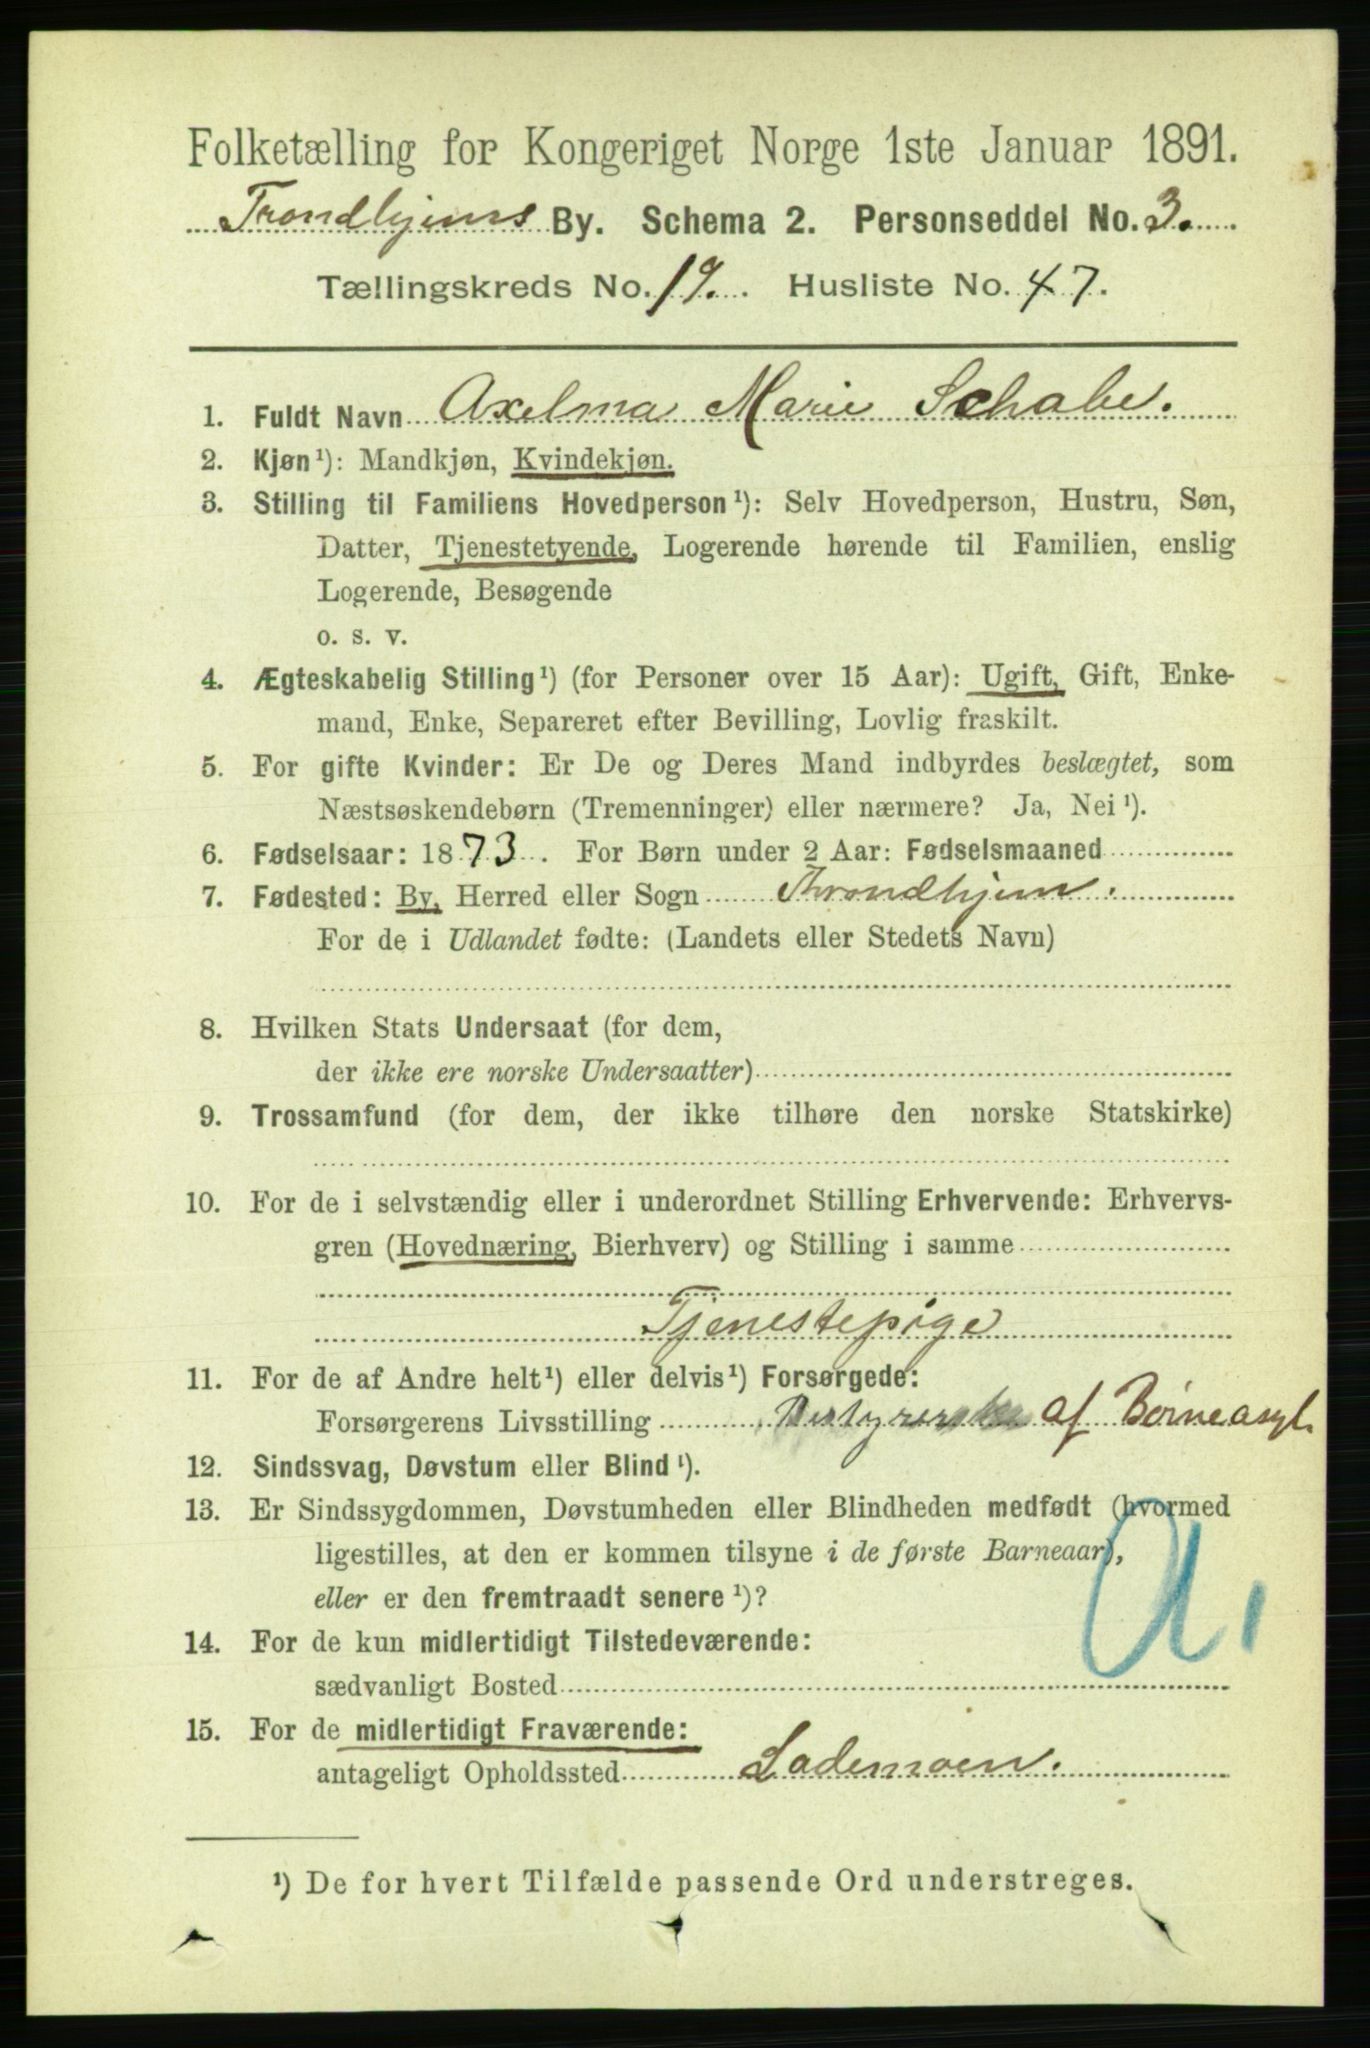 Folketælling for Kongeriget Norge 1ste Januar 1891.
Trondhjems By. Schema 2. Personseddel No. 3.
Tællingskreds No. 19. Husliste No. 47.
1. Fuldt Navn Axelma Marie Schabe.
2. Kjøn¹): Mandkjøn, Kvindekjøn.
3. Stilling til Familiens Hovedperson¹): Selv Hovedperson, Hustru, Søn,
Datter, Tjenestetyende, Logerende hørende til Familien, enslig
Logerende, Besøgende
o. s. v.
4. Ægteskabelig Stilling¹) (for Personer over 15 Aar): Ugift, Gift, Enke-
mand, Enke, Separeret efter Bevilling, Lovlig fraskilt.
5. For gifte Kvinder: Er De og Deres Mand indbyrdes beslægtet, som
Næstsøskendebørn (Tremenninger) eller nærmere? Ja, Nei¹).
6. Fødselsaar: 1873. For Børn under 2 Aar: Fødselsmaaned
7. Fødested: By, Herred eller Sogn Throndhjem.
For de i Udlandet fødte: (Landets eller Stedets Navn)
8. Hvilken Stats Undersaat (for dem,
der ikke ere norske Undersaatter)
9. Trossamfund (for dem, der ikke tilhøre den norske Statskirke)
10. For de i selvstændig eller i underordnet Stilling Erhvervende: Erhvervs-
gren (Hovednæring, Bierhverv) og Stilling i samme
Tjenestepige
11. For de af Andre helt¹) eller delvis¹) Forsørgede:
Forsørgerens Livsstilling Bestyrerske af Börneasyl.
12. Sindssvag, Døvstum eller Blind¹).
13. Er Sindssygdommen, Døvstumheden eller Blindheden medfødt (hvormed
ligestilles, at den er kommen tilsyne i de første Barneaar),
eller er den fremtraadt senere¹)?
14. For de kun midlertidigt Tilstedeværende:
sædvanligt Bosted
15. For de midlertidigt Fraværende:
antageligt Opholdssted Lademoen.
¹) De for hvert Tilfælde passende Ord understreges.